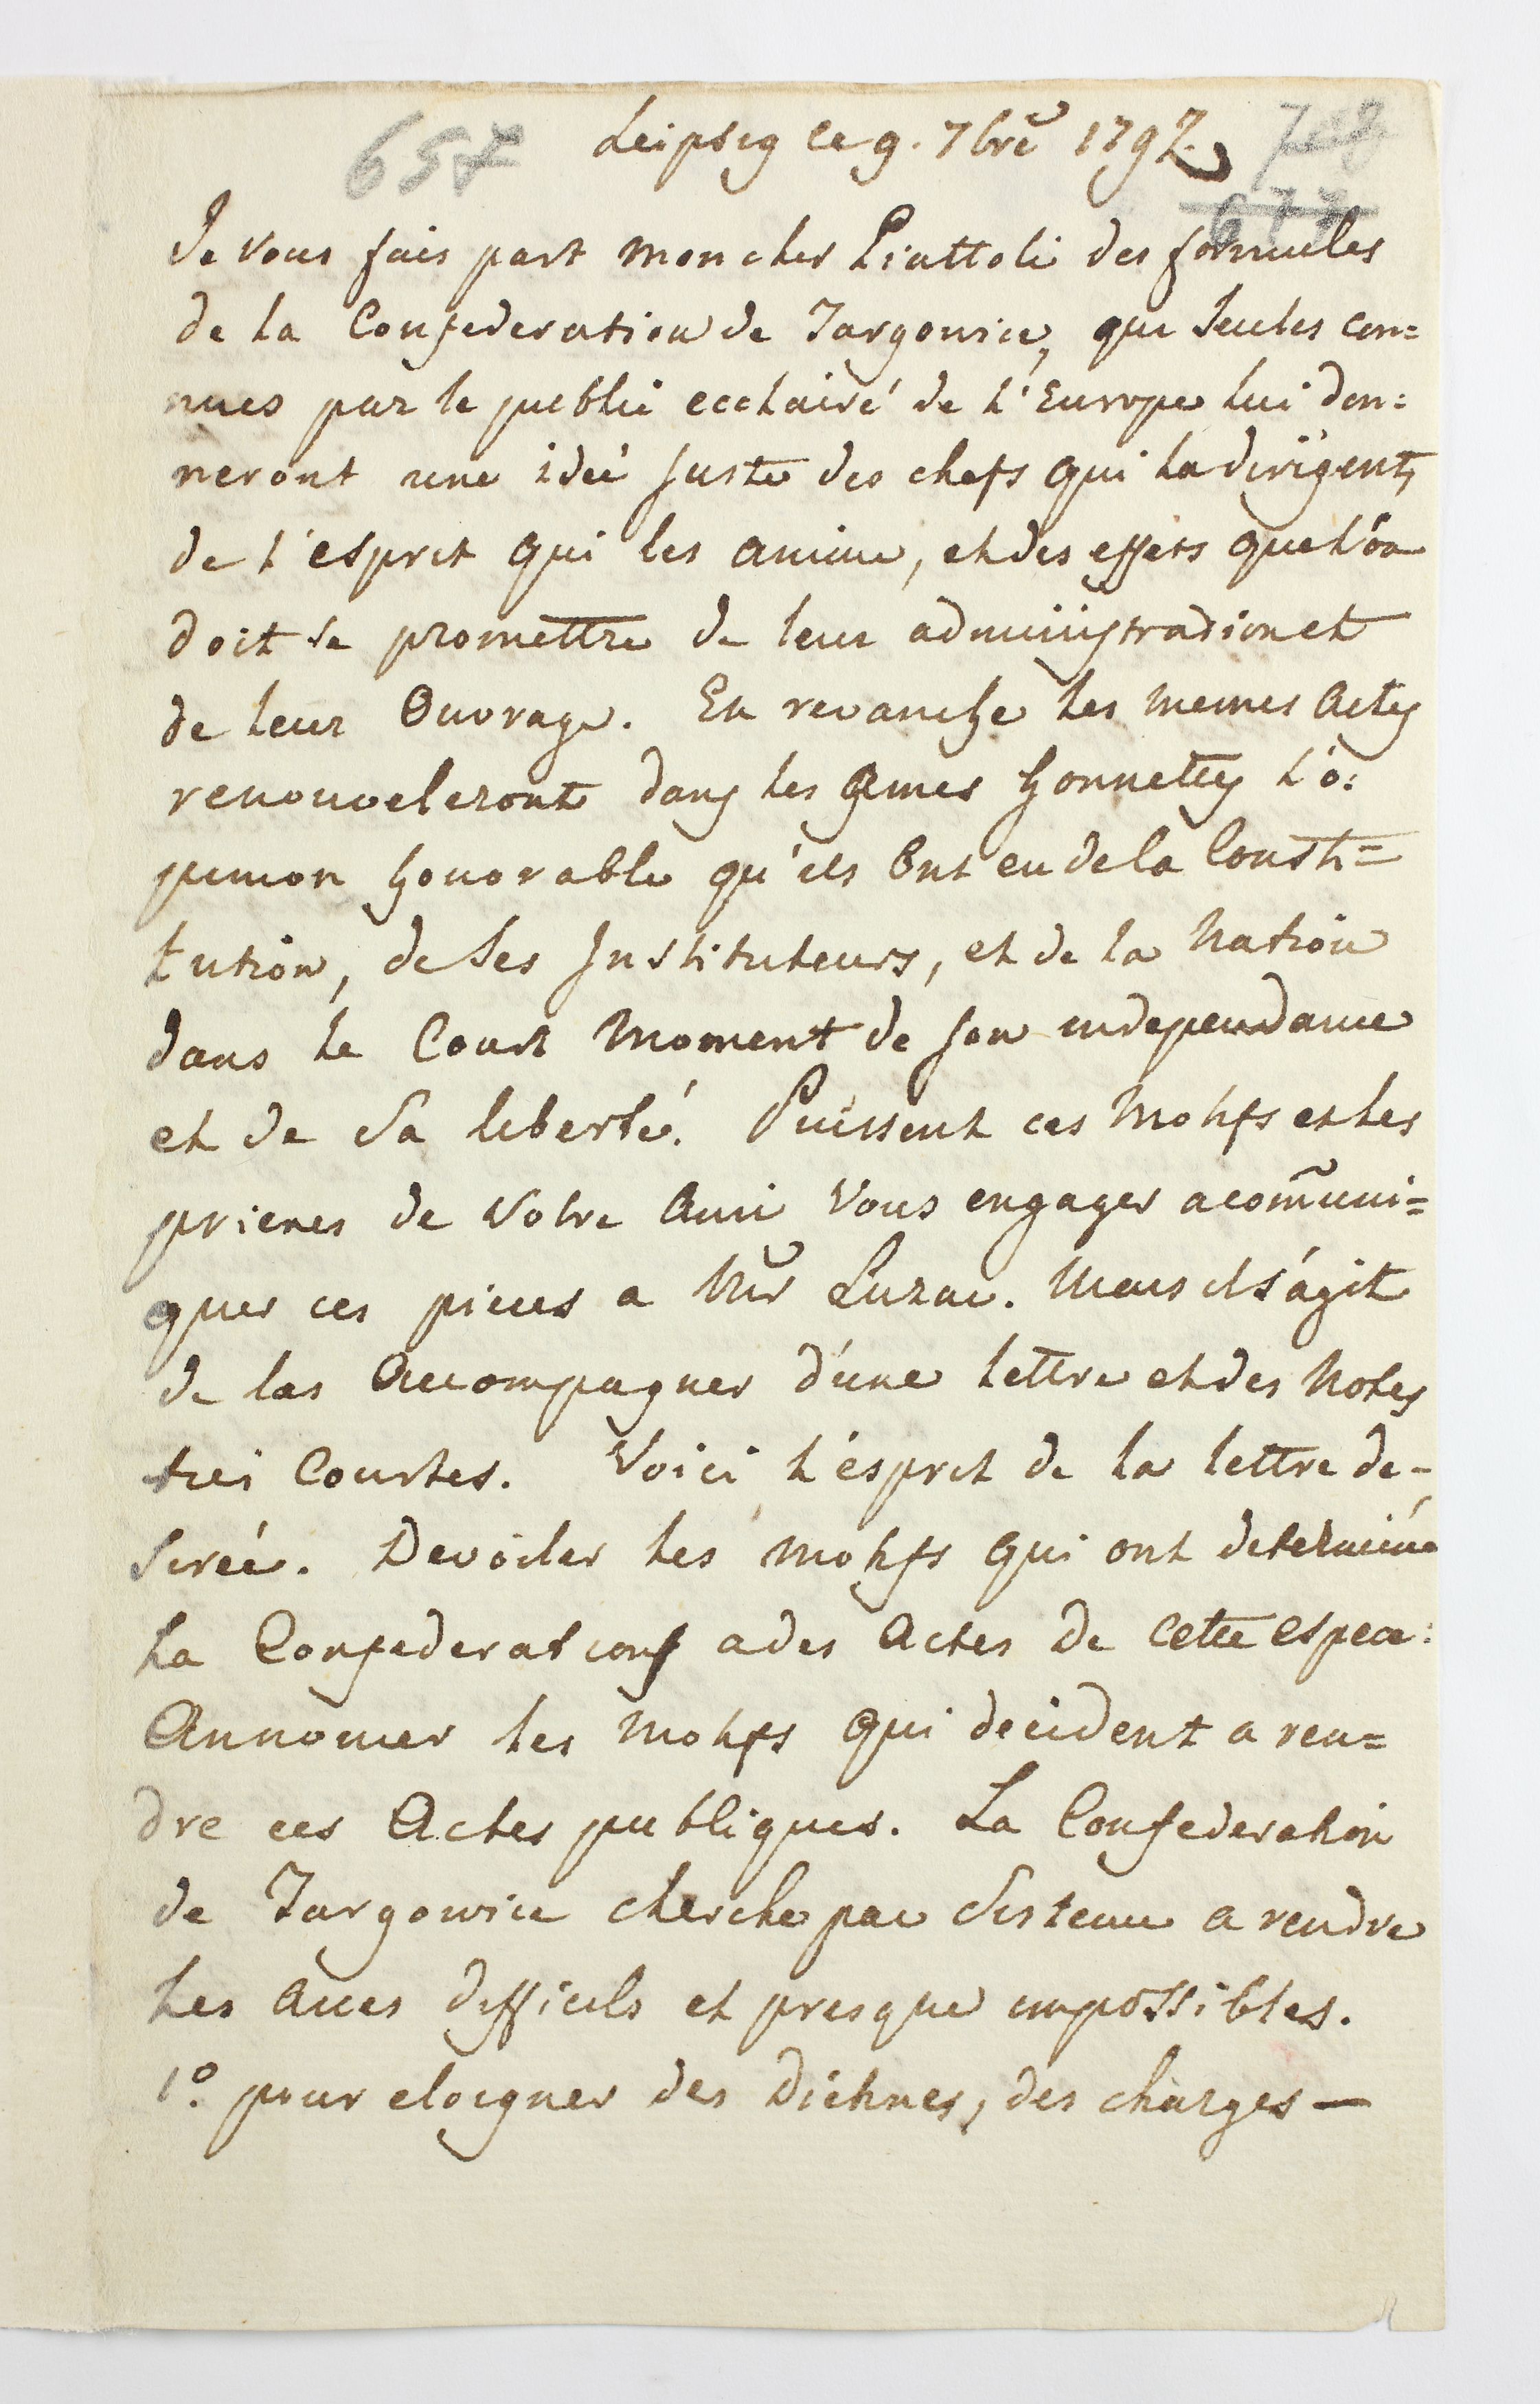 657 Leipsig ce 9. 7brẽ 1792.
677
Je vous fais part mon cher Piattoli des formules
de la Confederation de Targowice, que seules con=
nues par le public ecclairé de l'Europe lui don=
neront une idée juste des chefs qui la dirigent,
de l'esprit qui les anime, et des effets que l'on
doit se promettre de leur administration et
de leur Ouvrage. En revanche les memes Actes
renouveleront dans les Ames honnettes l'o=
pinion honorable qu'ils ont eu de la Consti=
tution, de ses Instituteurs, et de la Nation
dans le Court Moment de son independance
et de sa liberté. Puissent ces Motifs et les
prieres de Votre Ami Vous engager a com̃uni=
quer ces pieces a Mr Luzac. Mais il s'agit
de las Accompagner d'une lettre et des Notes
tres Courtes. Voici l'esprit de la lettre de-
sirée. Devoiler les motifs qui ont determiné
la Confederation a des Actes de cette espece:
Annoncer les Motifs qui decident a ren=
dre ces Actes publiques. La Confederation
de Targowice cherche par Sisteme a rendre
les Acces difficils et presque impossibles.
1º. pour eloigner des Dietines, des charges —